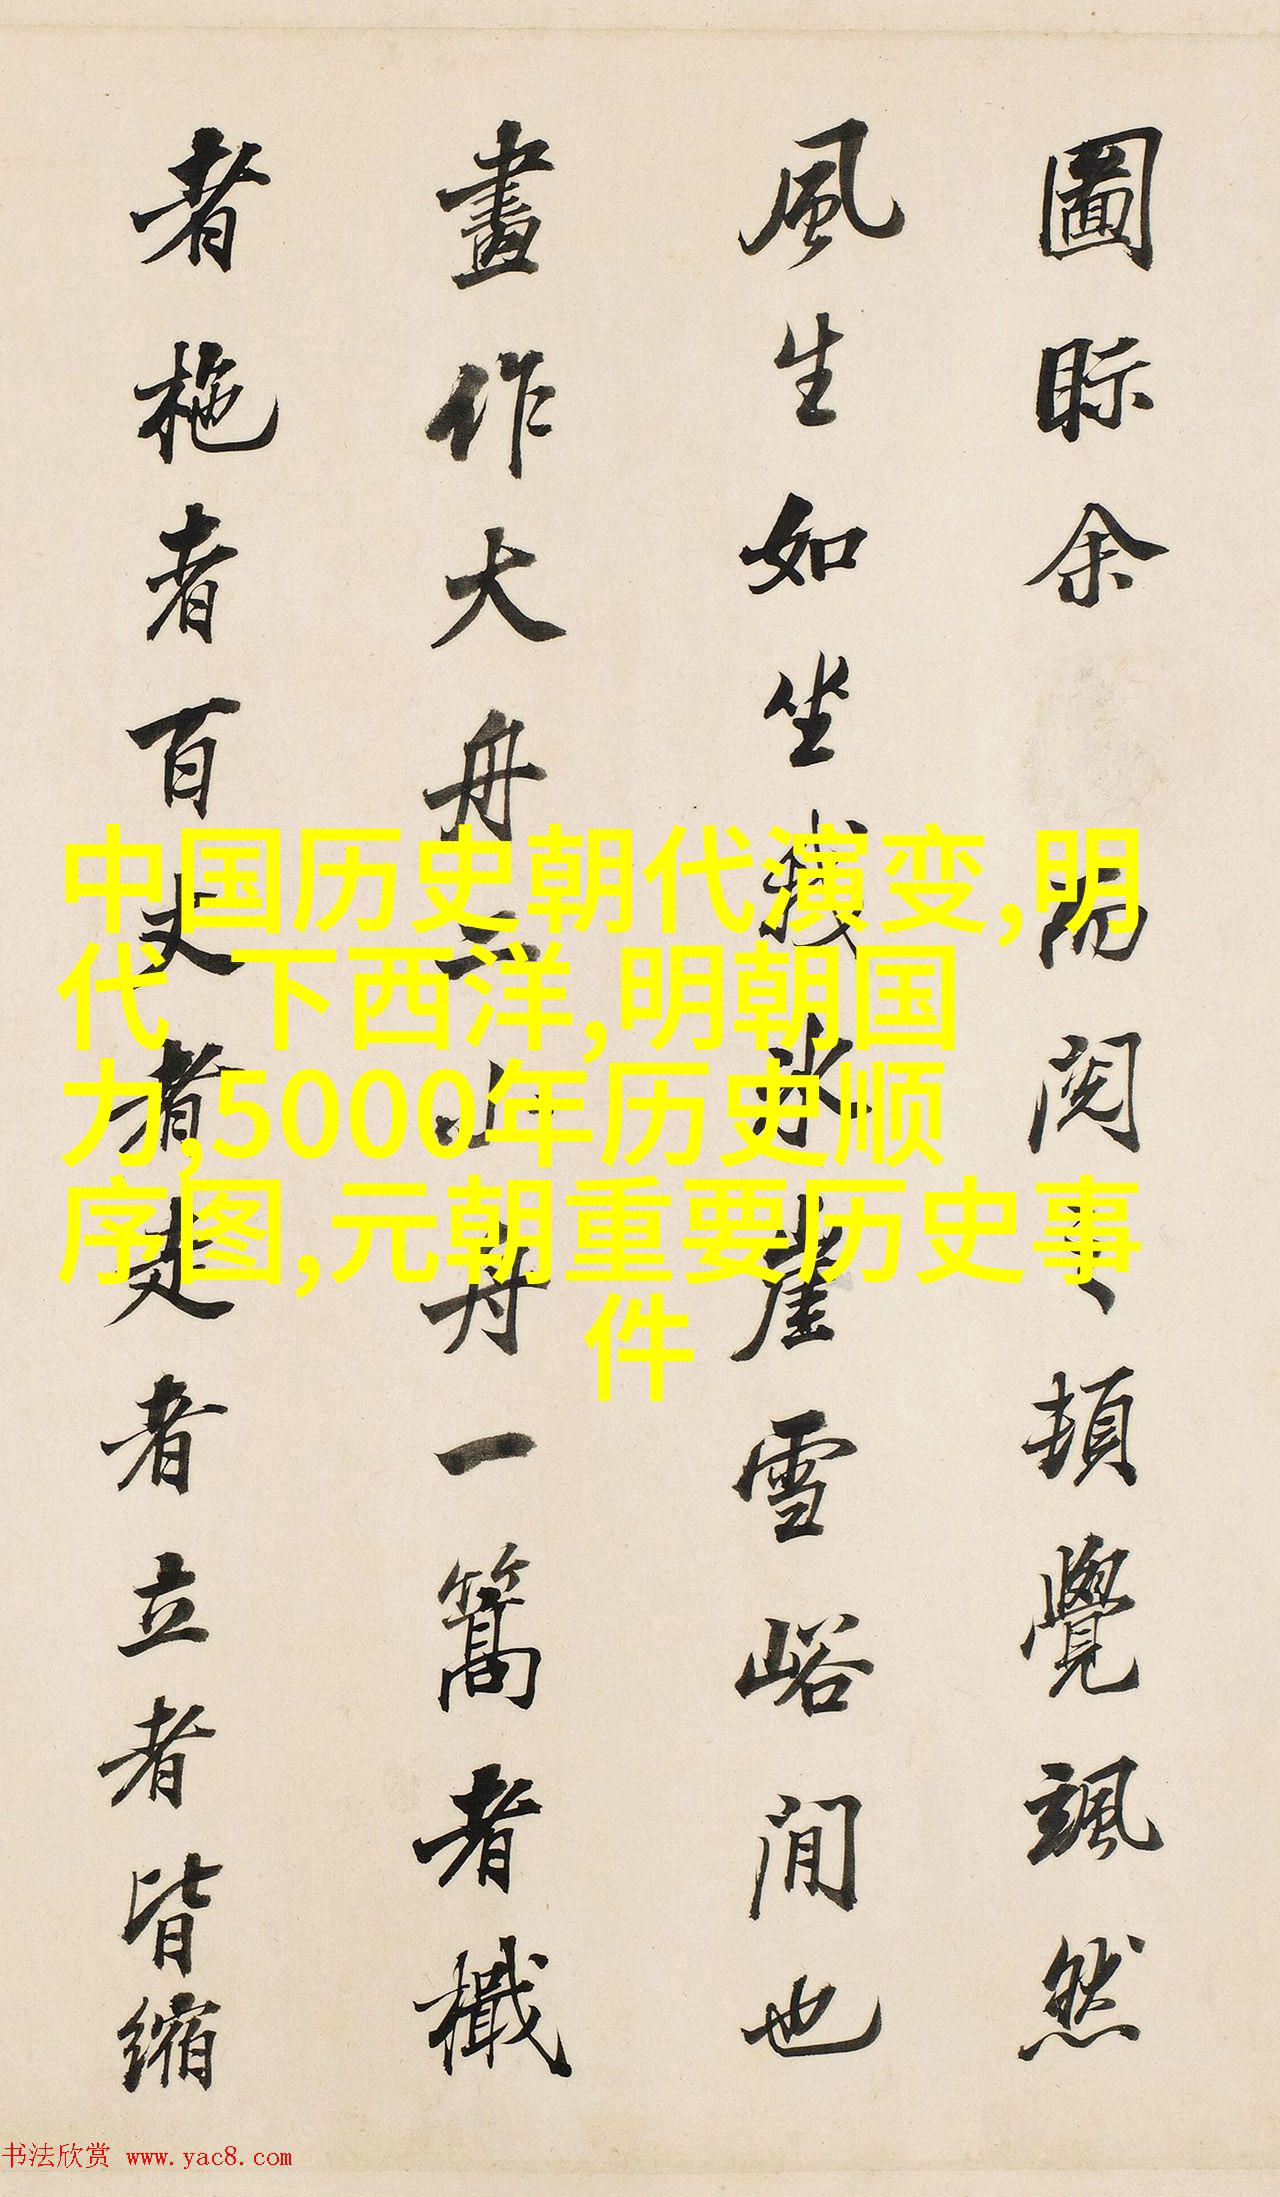 圖眎余而閱之頓覺颯然
風生如坐我冰崖雪峪間也
畫作大舟二小舟一篙者檝
者柂者百丈者走者立者皆縮
中国历史朝代演变,明
代 下西洋,明朝国
力,5000年历史顺
序图,元朝重要历史事
件
书法欣赏 www.yac8.com